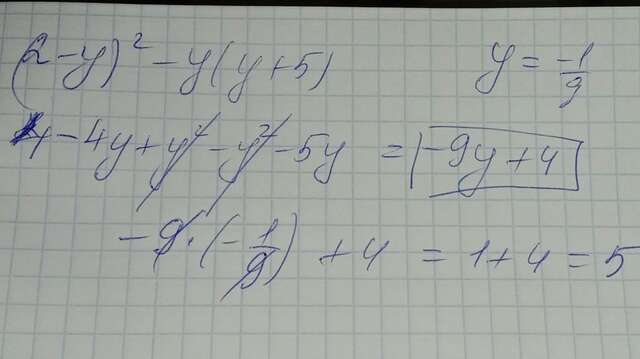 (2-y)² - y(y+5) y = -1/9
4 - 4y + y² - y² - 5y = -9y + 4
-9·(-1/9) + 4 = 1 + 4 = 5